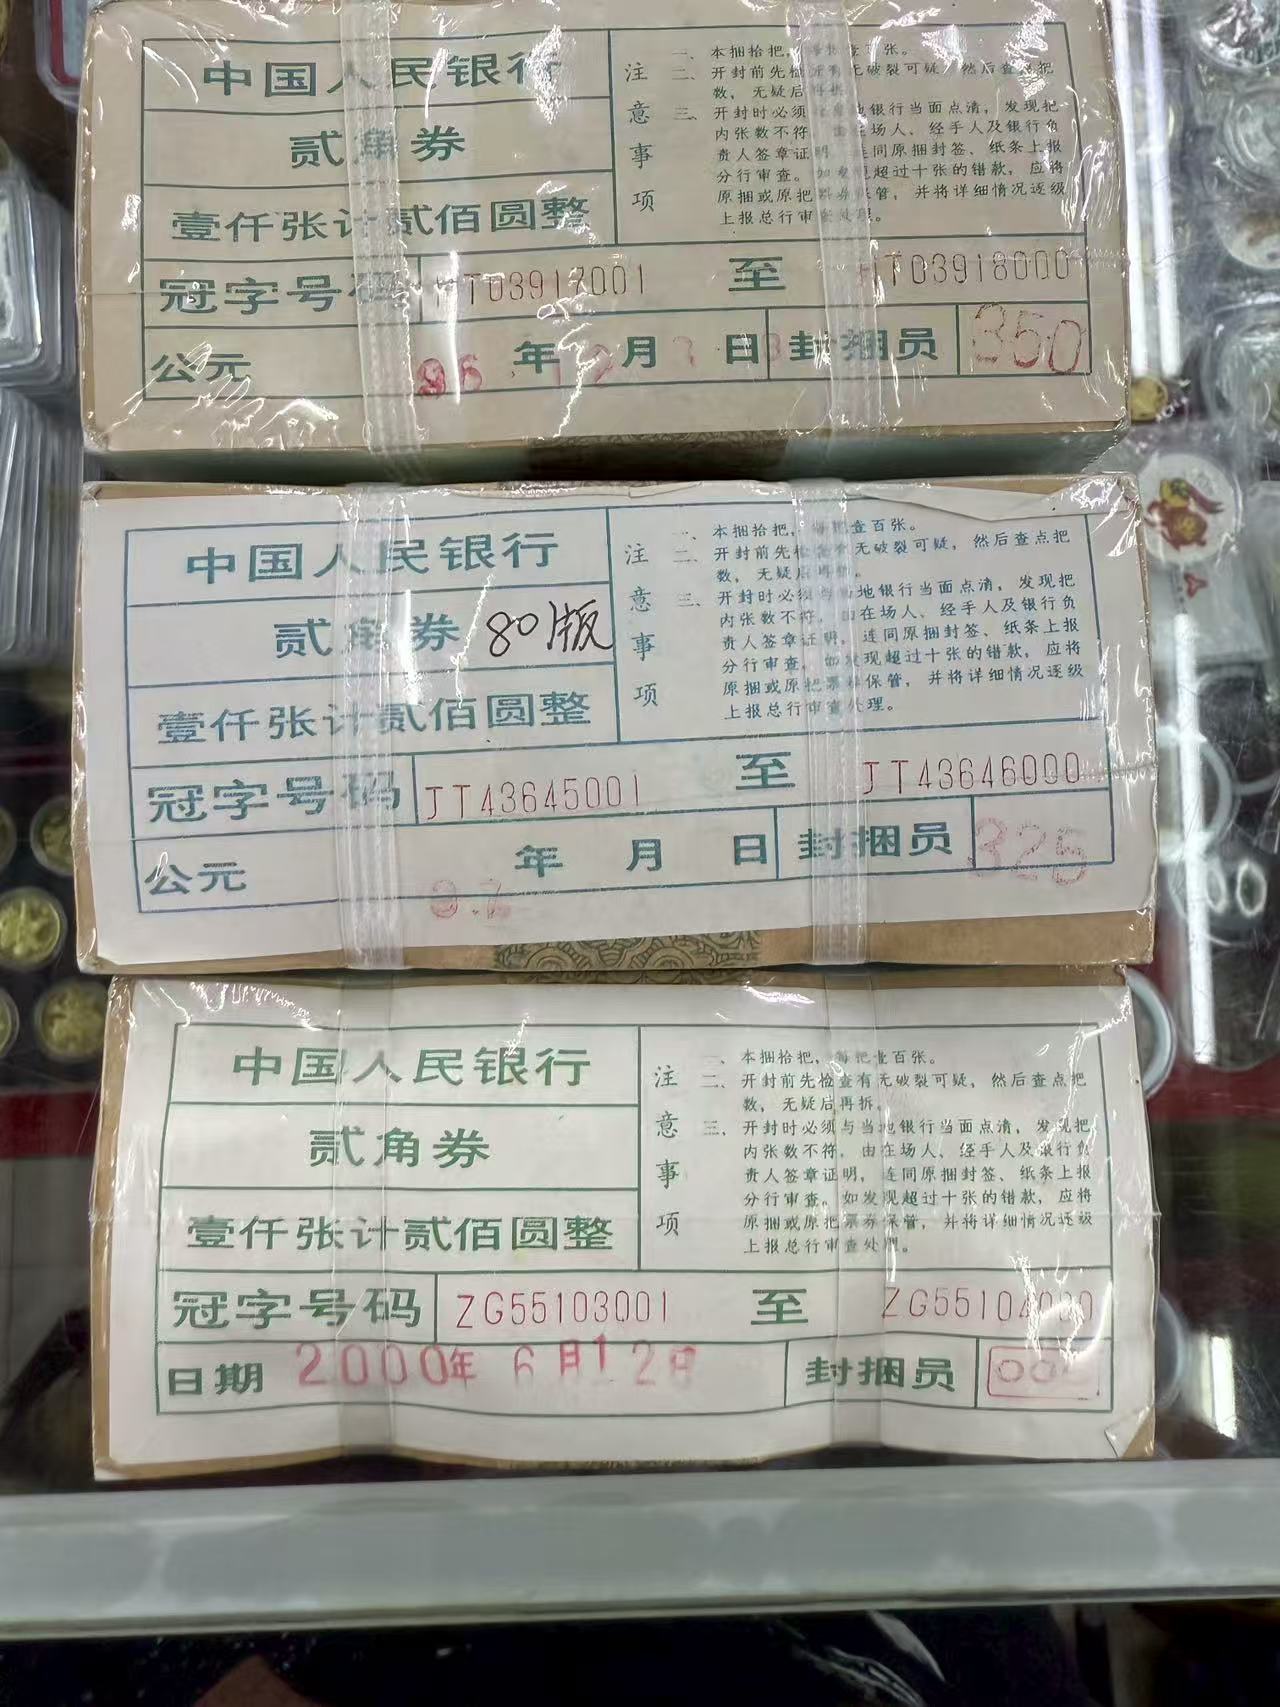 中国人民银行
贰角券
壹仟张计贰佰圆整
注意事项
一、本捆拾把，每把壹百张。
二、开封前先检查有无破裂可疑，然后查点把
数，无疑后再拆。
三、开封时必须与当地银行当面点清，发现把
内张数不符，由在场人、经手人及银行负
责人签章证明，连同原捆封签、纸条上报
分行审查。如发现超过十张的错款，应将
原捆或原把票券保管，并将详细情况逐级
上报总行审查处理。
冠字号码 HT03917001 至 HT03918000
公元 96 年 12 月 日 封捆员 350
中国人民银行
贰角券 80版
壹仟张计贰佰圆整
注意事项
一、本捆拾把，每把壹百张。
二、开封前先检查有无破裂可疑，然后查点把
数，无疑后再拆。
三、开封时必须与当地银行当面点清，发现把
内张数不符，由在场人、经手人及银行负
责人签章证明，连同原捆封签、纸条上报
分行审查。如发现超过十张的错款，应将
原捆或原把票券保管，并将详细情况逐级
上报总行审查处理。
冠字号码 JT43645001 至 JT43646000
公元 年 月 日 封捆员 325
中国人民银行
贰角券
壹仟张计贰佰圆整
注意事项
一、本捆拾把，每把壹百张。
二、开封前先检查有无破裂可疑，然后查点把
数，无疑后再拆。
三、开封时必须与当地银行当面点清，发现把
内张数不符，由在场人、经手人及银行负
责人签章证明，连同原捆封签、纸条上报
分行审查。如发现超过十张的错款，应将
原捆或原把票券保管，并将详细情况逐级
上报总行审查处理。
冠字号码 ZG55103001 至 ZG55104000
日期 2000年 6月12日 封捆员